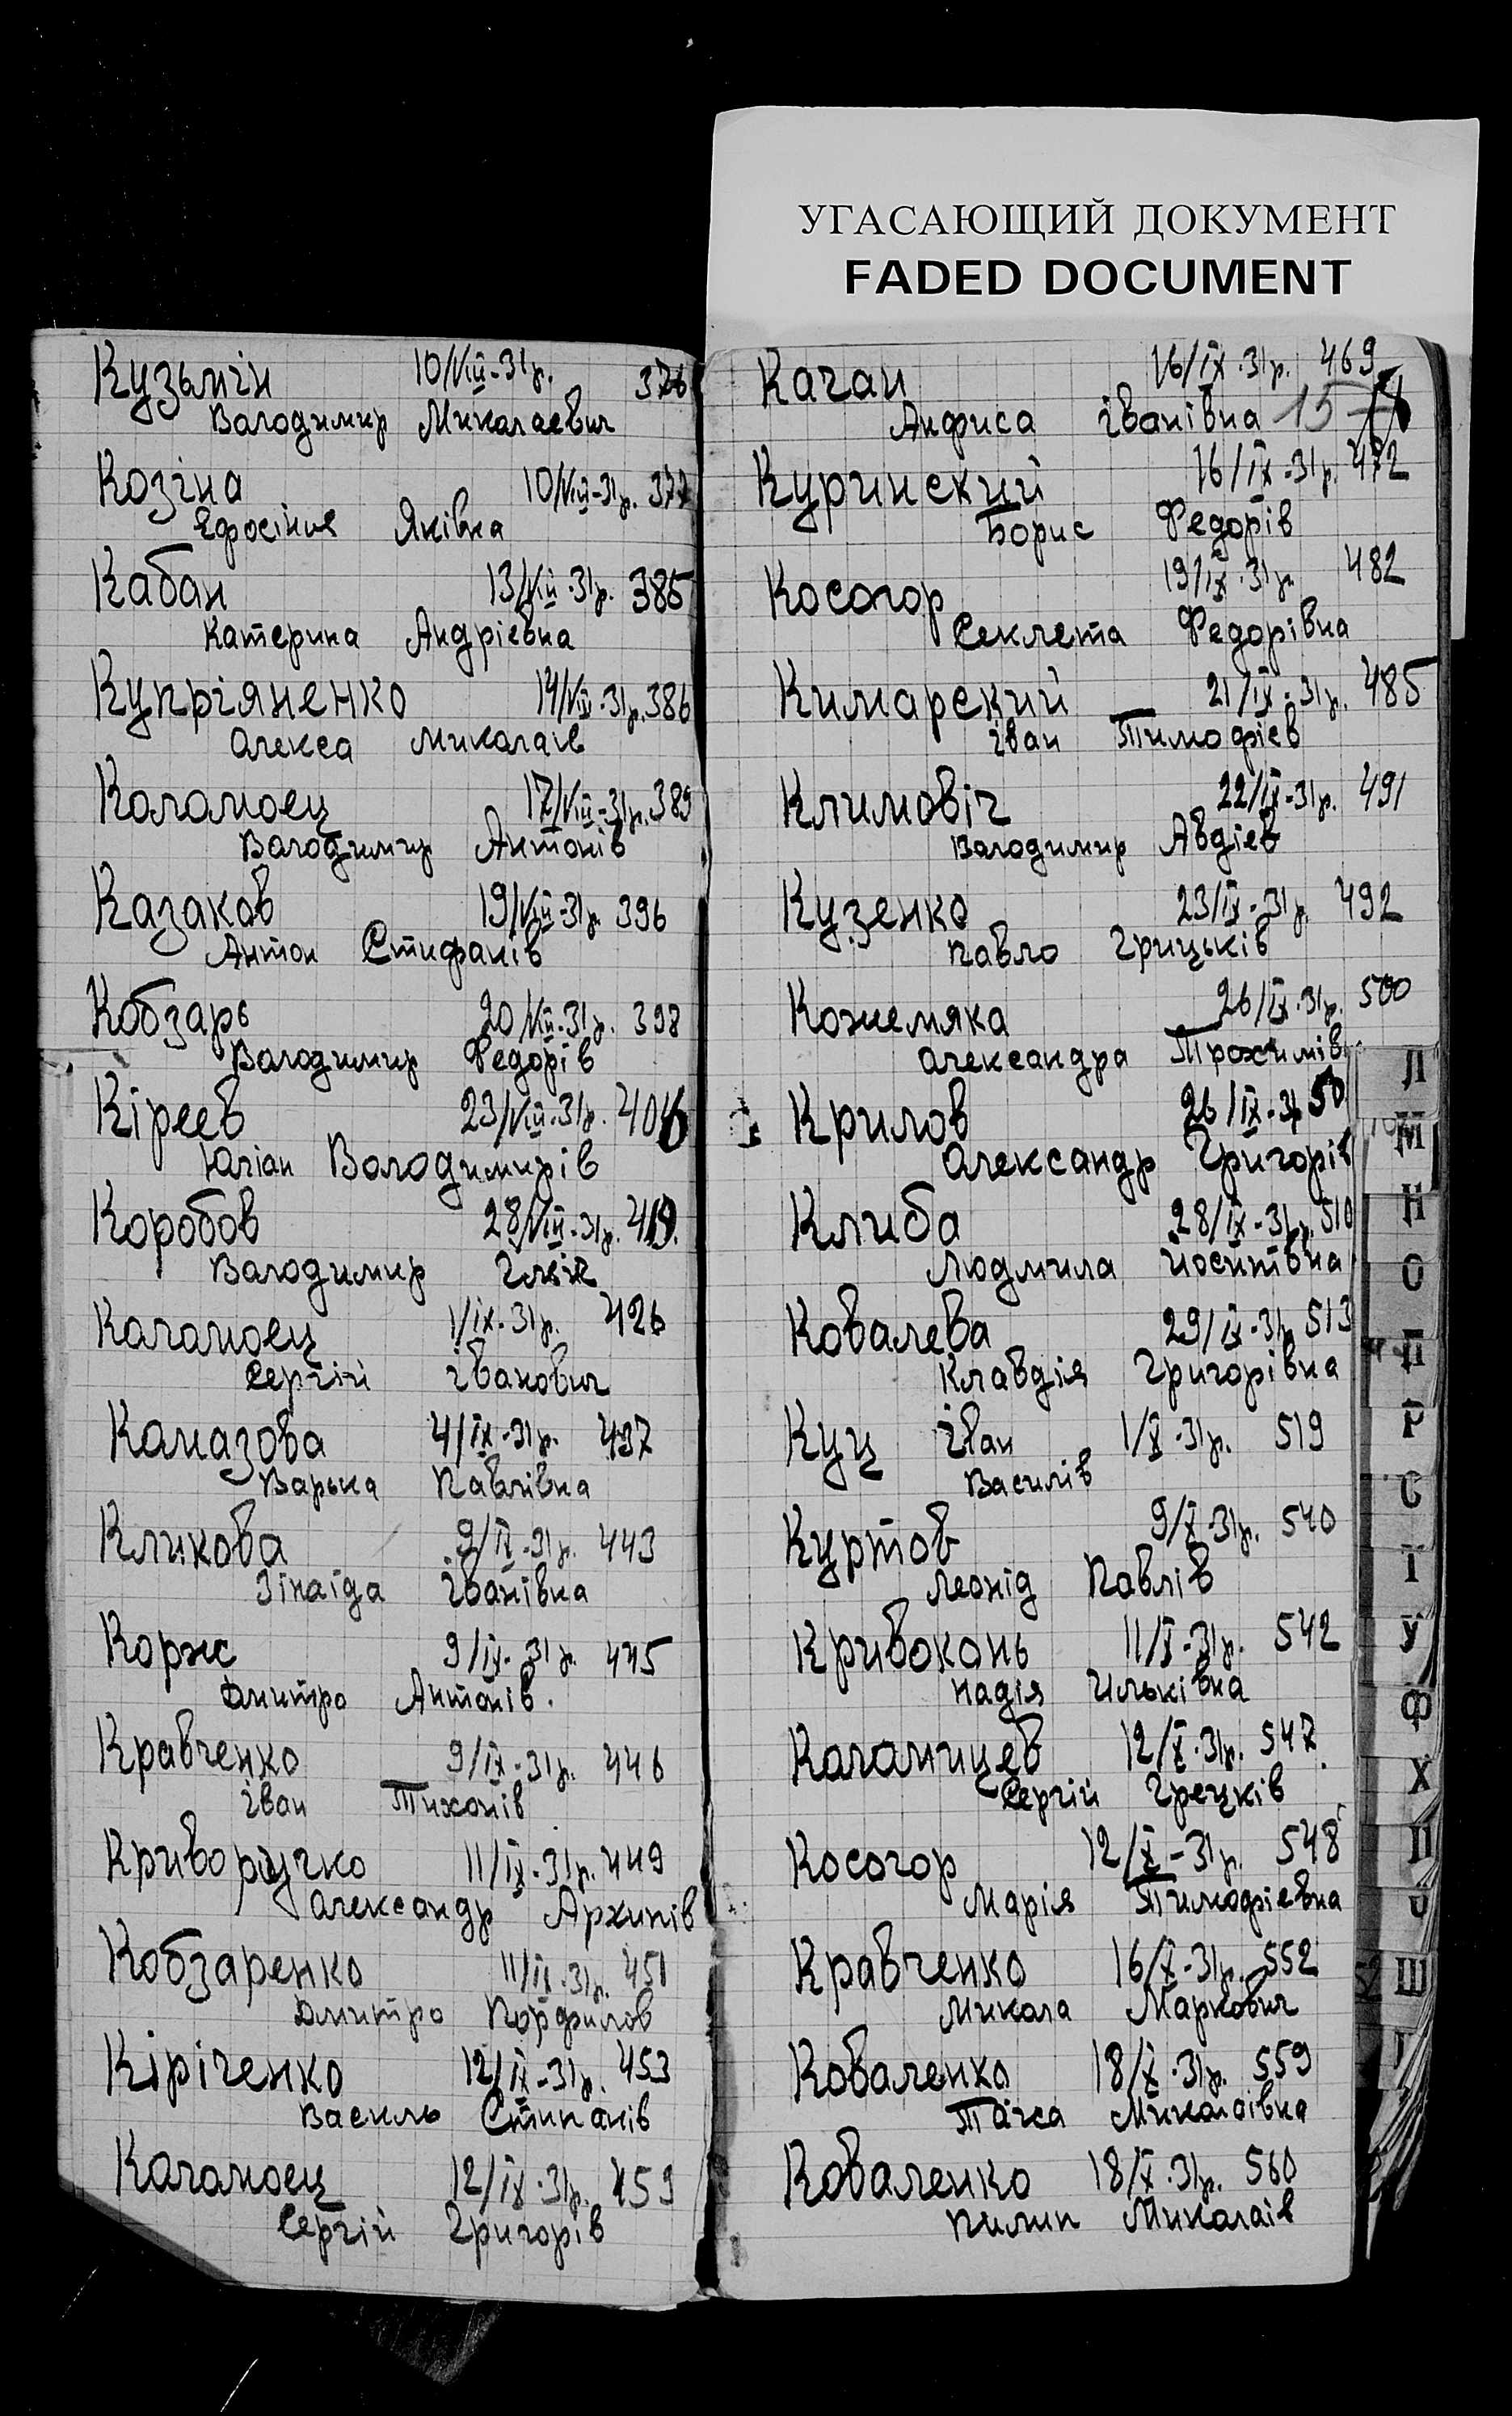 УГАСАЮЩИЙ ДОКУМЕНТ
FADED DOCUMENT
Кузьмін 10/VIII-31р. 376
Володимир Миколаевич
Козіна 10/VIII-31р. 377
Ефросіния Яківна
Кабан 13/VIII-31р. 385
Катерина Андріевна
Купріяненко 14/VIII-31р. 386
Олекса Миколаів
Коломоец 17/VIII-31р. 389
Володимир Антонів
Казаков 19/VIII-31р. 396
Антон Стифанів
Кобзарь 20/VIII-31р. 398
Володимир Федорів
Кіреев 23/VIII-31р. 406
Юліан Володимирів
Коробов 28/VIII-31р. 419.
Володимир
Каламоец 1/IX-31р. 426
Сергій Іванович
Камазова 4/IX-31р. 437
Варька Павлівна
Кликова 9/IX-31р. 443
Зінаіда Іванівна
Корж 9/IX-31р. 445
Дмитро Антонів.
Кравченко 9/IX-31р. 446
Іван Тихонів
Криворучко 11/IX-31р. 449
Олександр Архипів
Кобзаренко 11/IX-31р. 451
Дмитро Порфилов
Кіріченко 12/IX-31р. 453
Василь Стипанів
Каламоец 12/IX-31р. 459
Сергій Григорів
Качан 16/IX-31р. 469
Анфиса Іванівна 15
Куринский 16/IX-31р. 472
Борис Федорів
Косогор 19/IX-31р. 482
Секлета Федорівна
Кимарский 21/IX-31р. 485
Іван Тимофіев
Климовіч 22/IX-31р. 491
Володимир Авдіев
Кузенко 23/IX-31р. 492
Павло Грицьків
Кожемяка 26/IX-31р. 500
Олександра Трохимів
Крилов 26/IX-31р 50
Олександр Григорів
Клиба 28/IX-31р. 510
Людмила
Ковалева 29/IX-31р. 513
Клавдія Григорівна
Куц Іван 1/X-31р. 519
Василів
Куртов 9/X-31р. 540
Леонід Павлів
Кривоконь 11/X-31р. 542
Надія Ильківна
Каланицев 12/X-31р. 547
Сергій Грецків
Косогор 12/X-31р. 548
Марія Тимофіевна
Кравченко 16/X-31р. 552
Микола Маркович
Коваленко 18/X-31р. 559
Миколаівна
Коваленко 18/X-31р. 560
Пилип Миколаів
Л
М
Н
О
П
Р
С
Т
У
Ф
Х
Ц
Ч
Ш